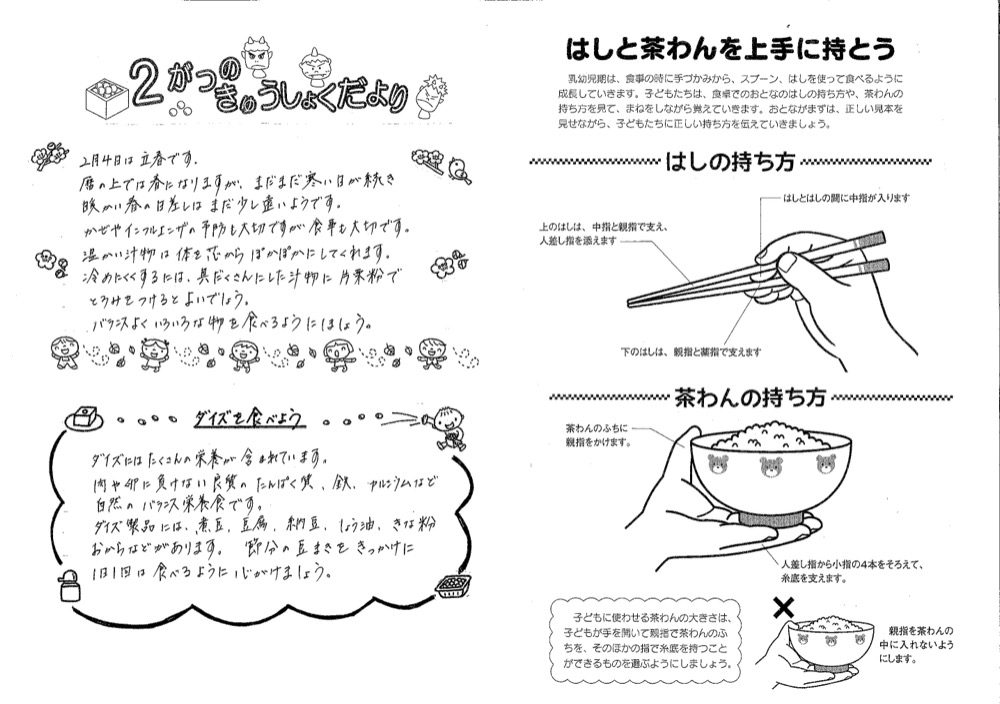 2がつの
きゅうしょくだより
2月4日は立春です。
暦の上では春になりますが、まだまだ寒い日が続き
暖かい春の日差しはまだ少し遠いようです。
かぜやインフルエンザの予防も大切ですが食事も大切です。
温かい汁物は体を芯からぽかぽかにしてくれます。
冷めにくくするには、具だくさんにした汁物に片栗粉で
とろみをつけるとよいでしょう。
バランスよくいろいろな物を食べるようにしましょう。
ダイズを食べよう
ダイズにはたくさんの栄養が含まれています。
肉や卵に負けない良質のたんぱく質、鉄、カルシウムなど
自然のバランス栄養食です。
ダイズ製品には、煮豆、豆腐、納豆、しょう油、きな粉
おからなどがあります。節分の豆まきをきっかけに
1日1回は食べるように心がけましょう。
はしと茶わんを上手に持とう
乳幼児期は、食事の時に手づかみから、スプーン、はしを使って食べるように
成長していきます。子どもたちは、食卓でのおとなのはしの持ち方や、茶わんの
持ち方を見て、まねをしながら覚えていきます。おとながまずは、正しい見本を
見せながら、子どもたちに正しい持ち方を伝えていきましょう。
はしの持ち方
はしとはしの間に中指が入ります
上のはしは、中指と親指で支え、
人差し指を添えます
下のはしは、親指と薬指で支えます
茶わんの持ち方
茶わんのふちに
親指をかけます。
人差し指から小指の4本をそろえて、
糸底を支えます。
子どもに使わせる茶わんの大きさは、
子どもが手を開いて親指で茶わんのふ
ちを、そのほかの指で糸底を持つこと
ができるものを選ぶようにしましょう。
親指を茶わんの
中に入れないよう
にします。